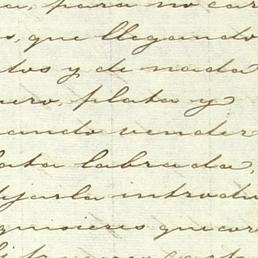 a, para no car
s, que llegando
tos y de nada
nero, plata y
ando vender
lata labrada,
ejarla introdu
quisieres que cor